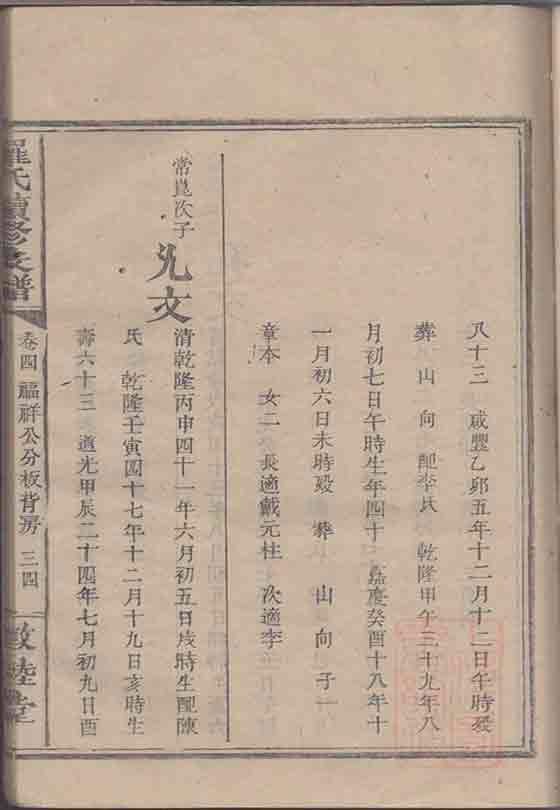 八十三　咸豐乙卯五年十二月十二日午時歿
葬　山　向　配李氏　乾隆甲午三十九年八
月初七日午時生年四十　嘉慶癸酉十八年十
一月初六日未時歿　葬　山　向　子一
章本　女二　長適戴元柱　次適李
常崑次子
允文
清乾隆丙申四十一年六月初五日戌時生配陳
氏　乾隆壬寅四十七年十二月十九日亥時生
壽六十三　道光甲辰二十四年七月初九日酉
羅氏續修支譜
卷四　福祥公分板背房　三四
敦睦堂